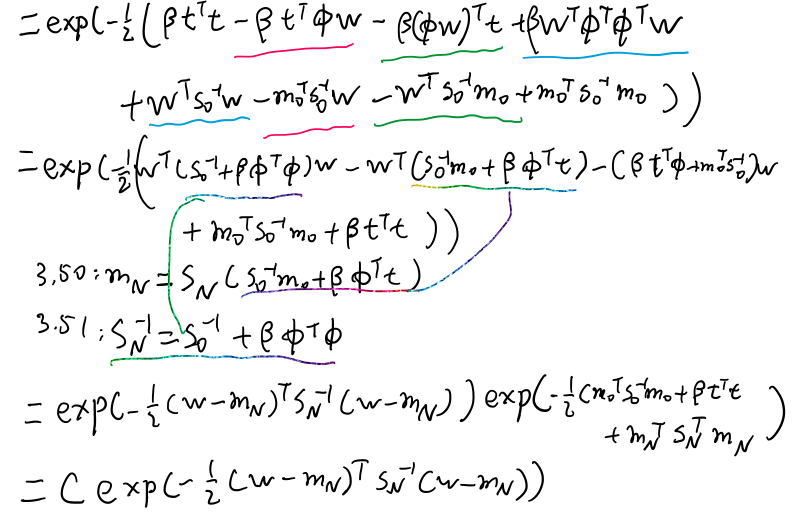 = exp(-½(βtᵀt - βtᵀΦw - β(Φw)ᵀt + βwᵀΦᵀΦᵀw
+ wᵀS₀⁻¹w - m₀ᵀS₀⁻¹w - wᵀS₀⁻¹m₀ + m₀ᵀS₀⁻¹m₀))
= exp(-½(wᵀ(S₀⁻¹+βΦᵀΦ)w - wᵀ(S₀⁻¹m₀+βΦᵀt) - (βtᵀΦ+m₀ᵀS₀⁻¹)w
+ m₀ᵀS₀⁻¹m₀ + βtᵀt))
3.50: m_N = S_N(S₀⁻¹m₀+βΦᵀt)
3.51: S_N⁻¹ = S₀⁻¹ + βΦᵀΦ
= exp(-½(w-m_N)ᵀS_N⁻¹(w-m_N)) exp(-½(m₀ᵀS₀⁻¹m₀+βtᵀt
+ m_Nᵀ S_Nᵀ m_N)
= C exp(-½(w-m_N)ᵀ S_N⁻¹(w-m_N))